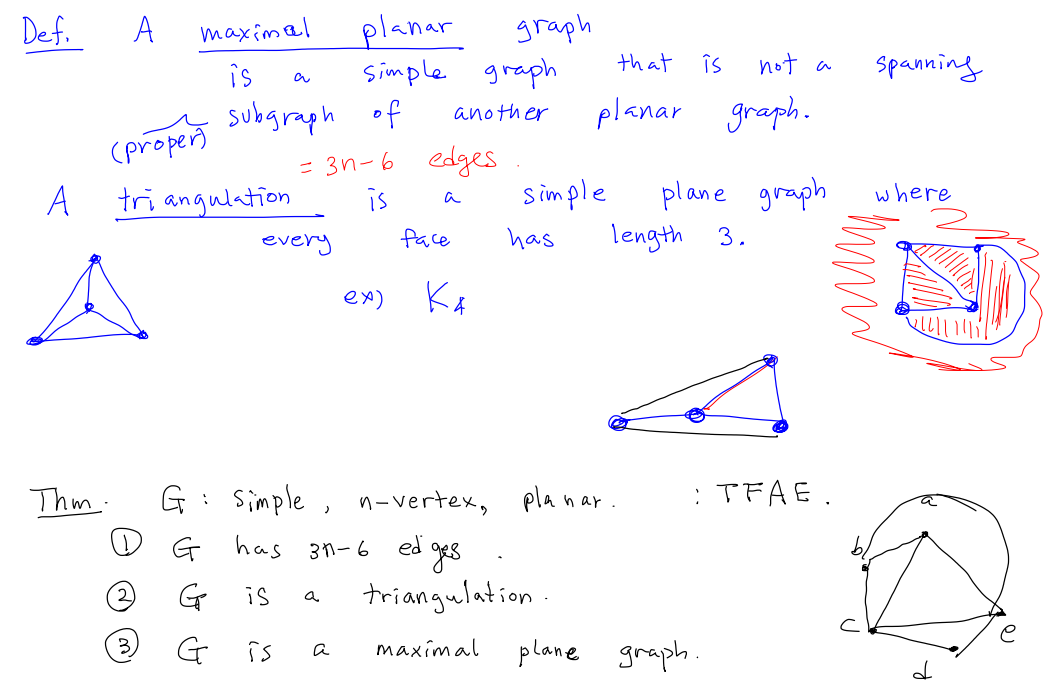 Def. A maximal planar graph
is a simple graph that is not a spanning
(proper) subgraph of another planar graph.
= 3n-6 edges.
A triangulation is a simple plane graph where
every face has length 3.
ex) K₄
Thm. G : simple, n-vertex, planar. : TFAE.
① G has 3n-6 edges.
② G is a triangulation.
③ G is a maximal plane graph.
a
b
c
e
d